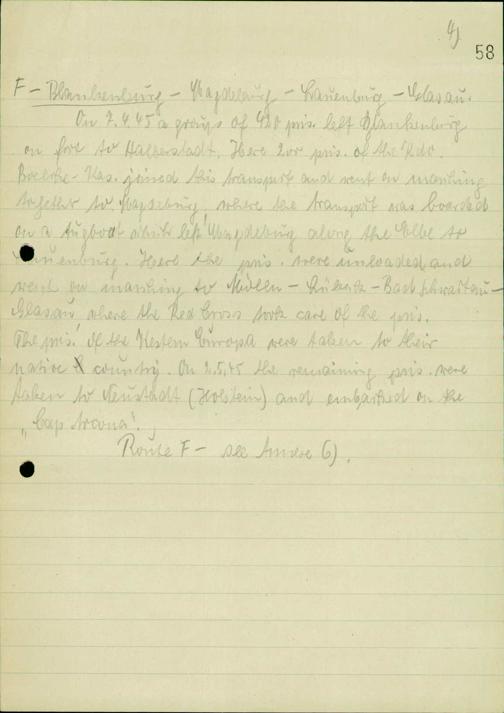 4)
58
F - Blankenburg - Magdeburg - Lauenburg - Glasau.
On 7.4.45 a group of 420 pris. left Blankenburg
on foot to Halberstadt. Here 200 pris. of the Kdo.
Boelcke-Kas. joined this transport and went on marching
together to Magdeburg, where the transport was boarded
on a tugboat which left Magdeburg along the Elbe to
Lauenburg. Here the pris. were unloaded and
went on marching to Mölln - Lübeck - Bad Schwartau -
Glasau, where the Red Cross took care of the pris.
The pris. of the Western Europa were taken to their
native country. On 2.5.45 the remaining pris. were
taken to Neustadt (Holstein) and embarked on the
„Cap Arcona".
Route F - see 6).